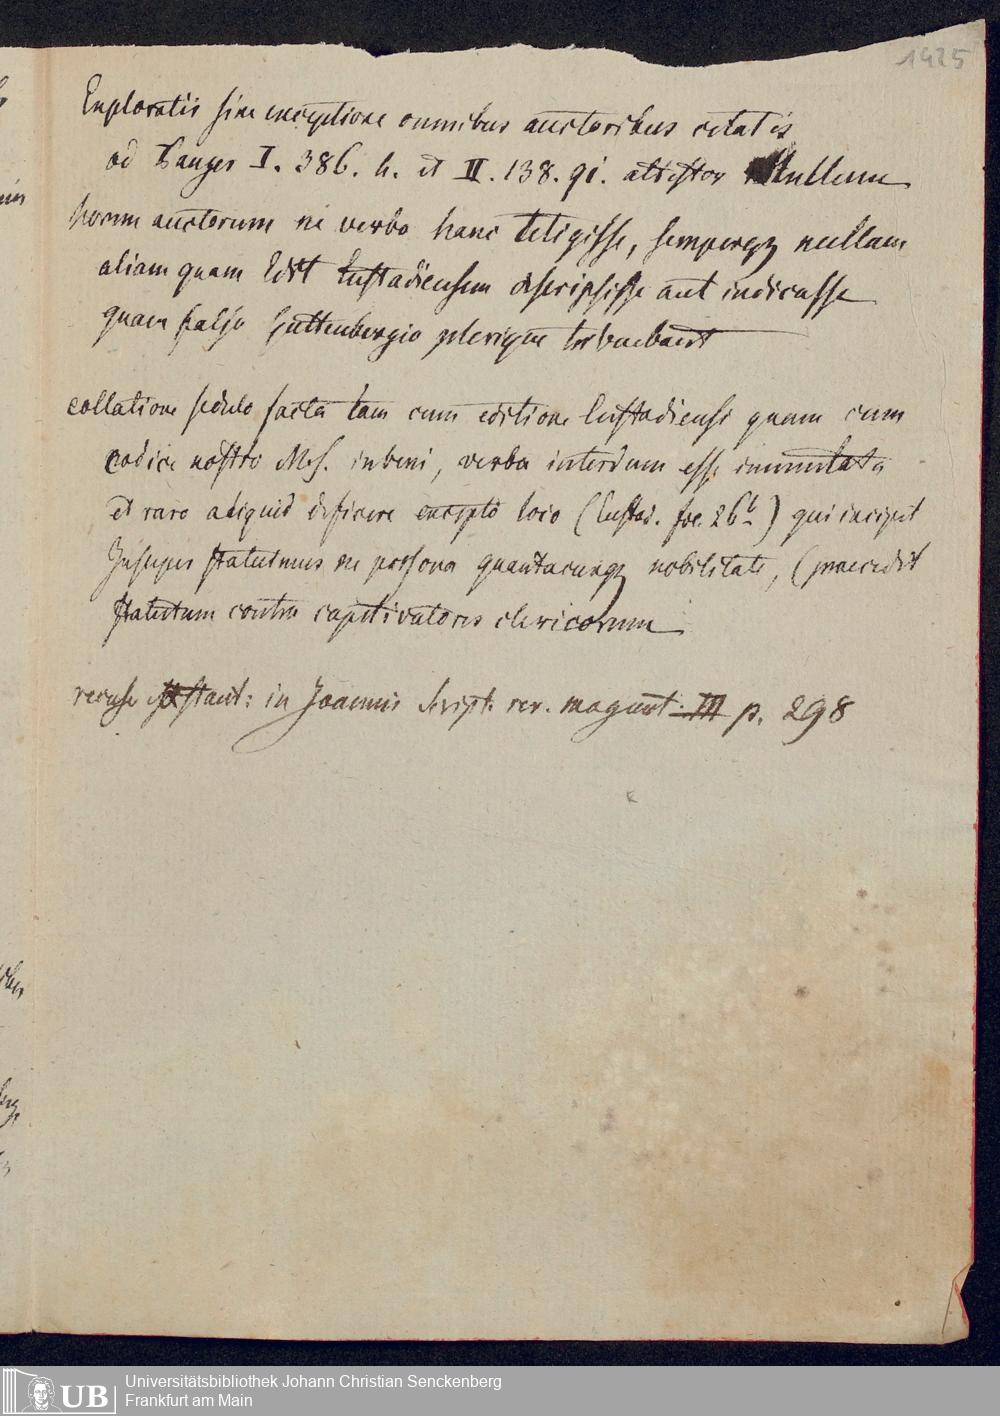 1425
Exploratis sine exceptione omnibus auctoribus citatis
ad Panzer I. 386. h. et II. 138. qi. attestor Nullum
horum auctorum ne verbo hanc tetigisse, semperqz nullam
aliam quam Edit Eustadiensem descripsisse aut indicasse
quam falso Guttenbergio plerique tribuebant
collatione sedulo facta tam cum editione Eustadiensi quam cum
codice nostro Mss. inveni, verba interdum esse immutata
et raro aliquid deficere excepto loco (Eustad. fol. 26b) qui incipit
Insuper statuimus ne persona quantacunqz nobilitate, (praecedit
statutum contra captivatores clericorum
recusa exstant: in Joannis Script. rer. mogunt. III p. 298
UB Universitätsbibliothek Johann Christian Senckenberg
Frankfurt am Main